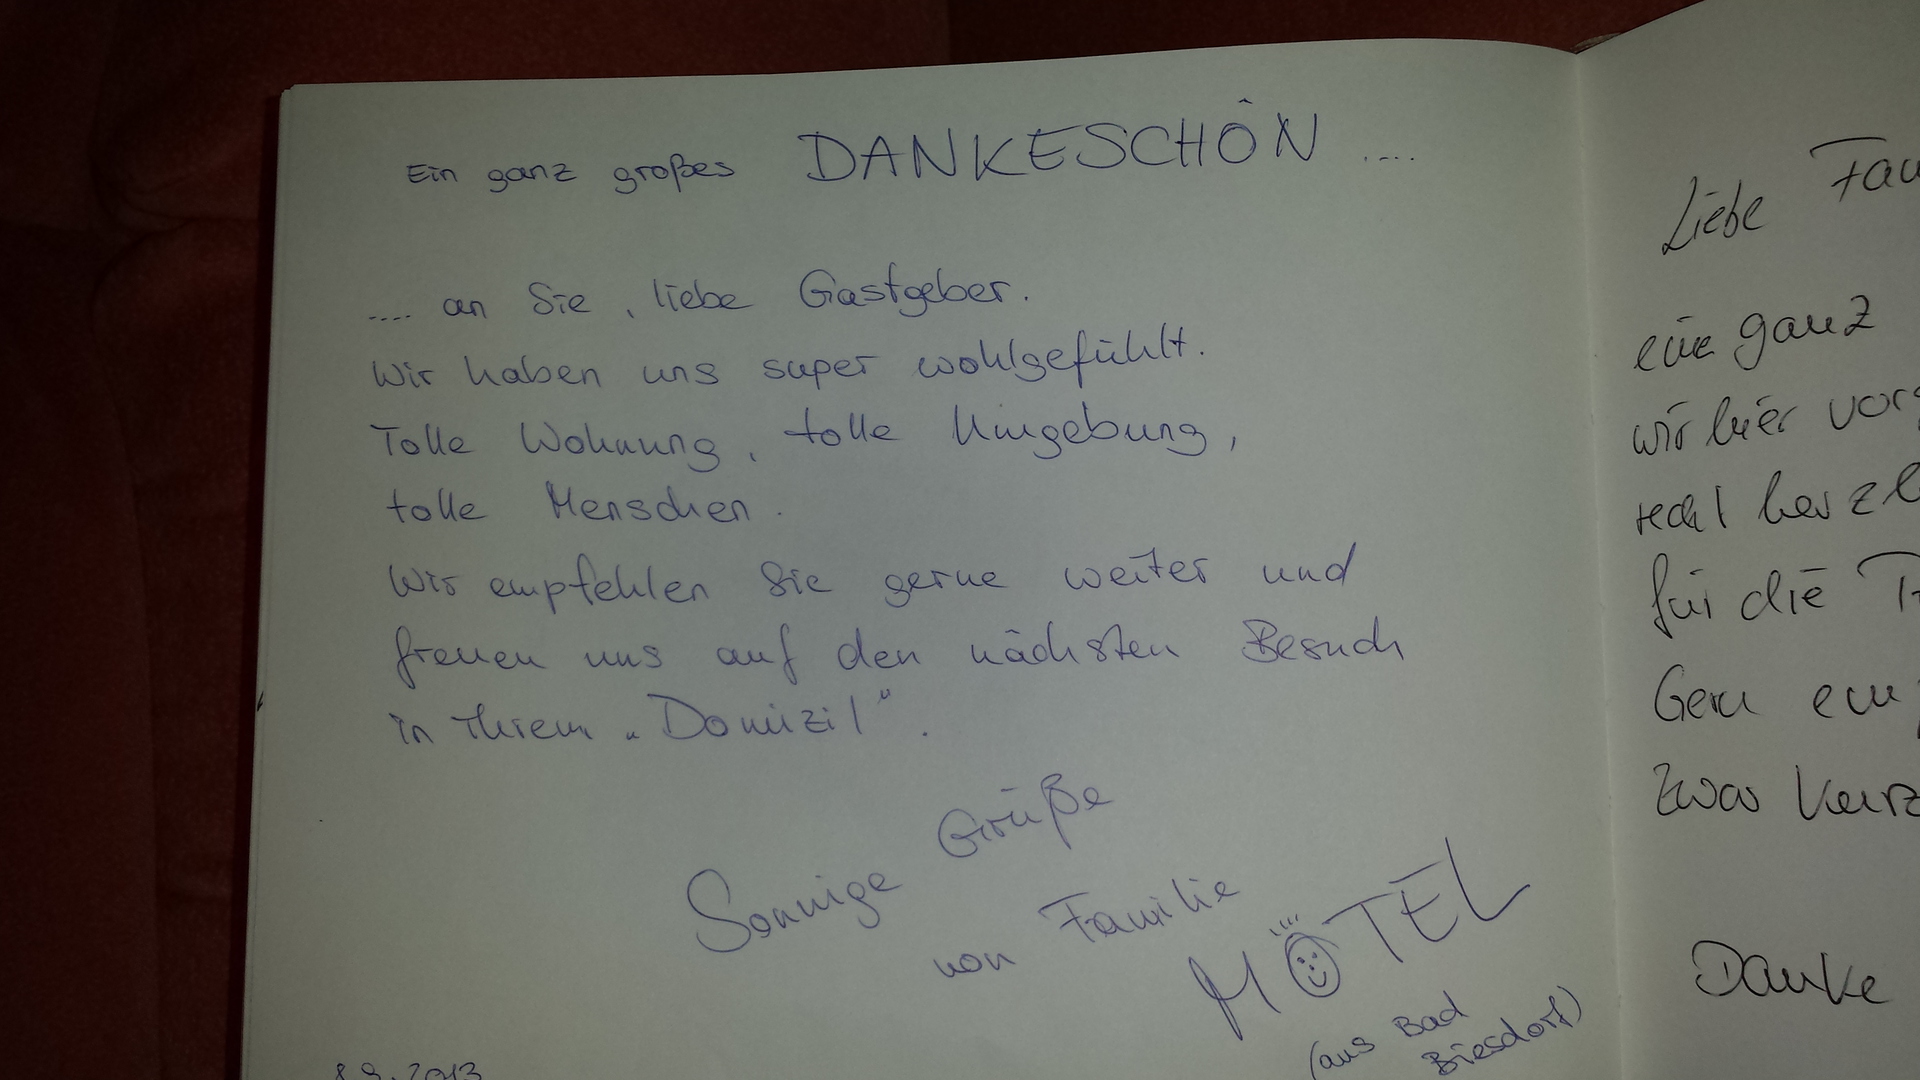 Ein ganz großes DANKESCHÖN ....
.... an Sie, liebe Gastgeber.
Wir haben uns super wohlgefühlt.
Tolle Wohnung, tolle Umgebung,
tolle Menschen.
Wir empfehlen Sie gerne weiter und
freuen uns auf den nächsten Besuch
in Ihrem „Domizil".
Sonnige Grüße
von Familie
MÖTEL
(aus Bad
Biesdorf)
8.9.2013
Liebe
eine ganz
wir hier
recht
für die
Gern
Zwar
Danke